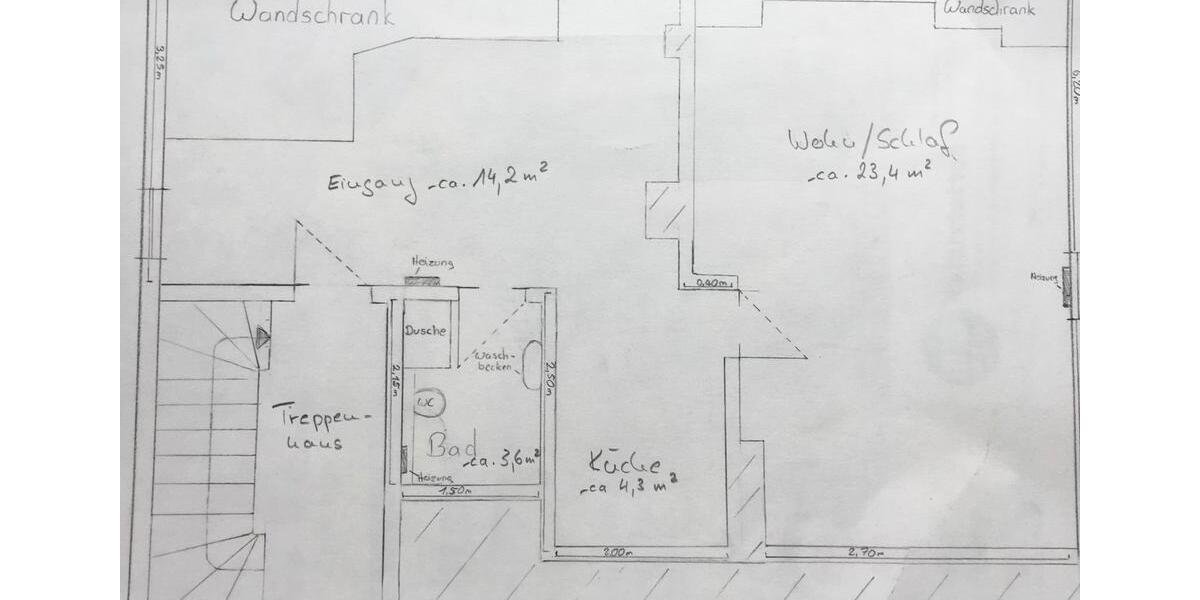 Wandschrank
Wandschrank
3,25m
6,20m
Wohn/Schlaf
-ca. 23,4 m²
Eingang -ca. 14,2 m²
Heizung
Heizung
0,40m
Dusche
Wasch-
becken
2,15m
2,50m
WC
Treppen-
haus
Bad
-ca. 3,6 m²
Küche
-ca 4,3 m²
Heizung
1,50m
200m
2,70m